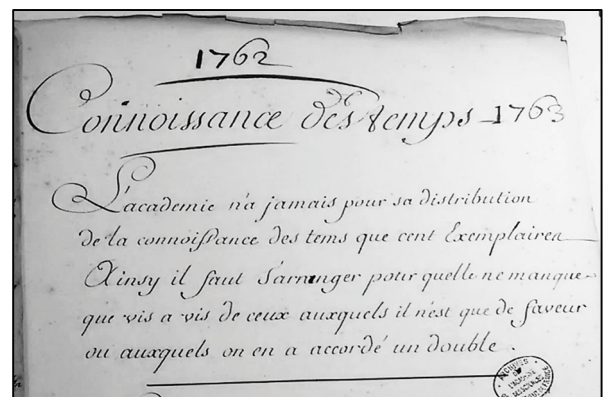 1762
Connoissance des temps 1763
L'academie n'a jamais pour sa distribution
de la connoissance des tems que cent Exemplaires
Ainsy il faut s'arranger pour quelle ne manque
que vis a vis de ceux auxquels il n'est que de faveur
ou auxquels on en a accordé un double.
ARCHIVES